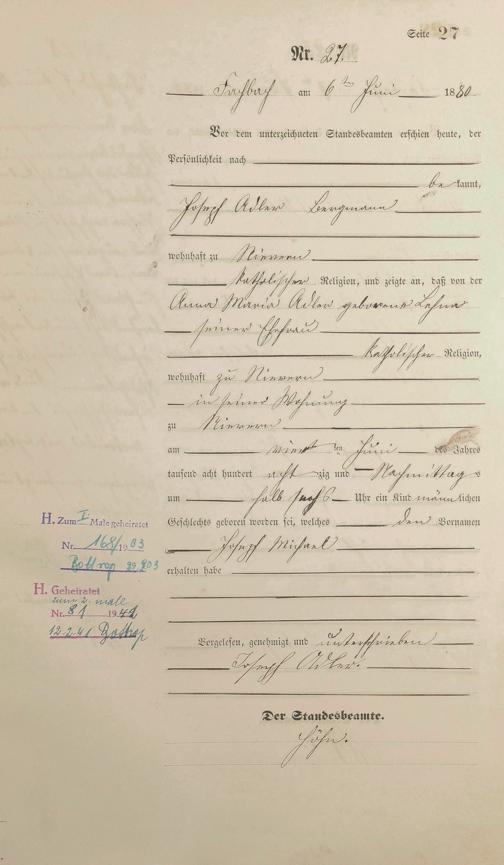 Seite 27
Nr. 27.
Fachbach am 6ten Juni 1880
Vor dem unterzeichneten Standesbeamten erschien heute, der
Persönlichkeit nach
bekannt,
Joseph Adler Bergmann
wohnhaft zu Nievern
katholischer Religion, und zeigte an, daß von der
Anna Maria Adler geborene Lehna
seiner Ehefrau
katholischer Religion,
wohnhaft zu Nievern
in seiner Wohnung
zu Nievern
am vierten Juni des Jahres
tausend acht hundert achtzig und Nachmittags
um halb sechs Uhr ein Kind männlichen
Geschlechts geboren worden sei, welches den Vornamen
Joseph Michael
erhalten habe
Vorgelesen, genehmigt und unterschrieben
Joseph Adler.
Der Standesbeamte.
Höhn.
H. Zum I Male geheiratet
Nr. 168/1903
Bottrop
H. Geheiratet
zum 2. mall
Nr. 81 1941
12.2.41 Bottrop